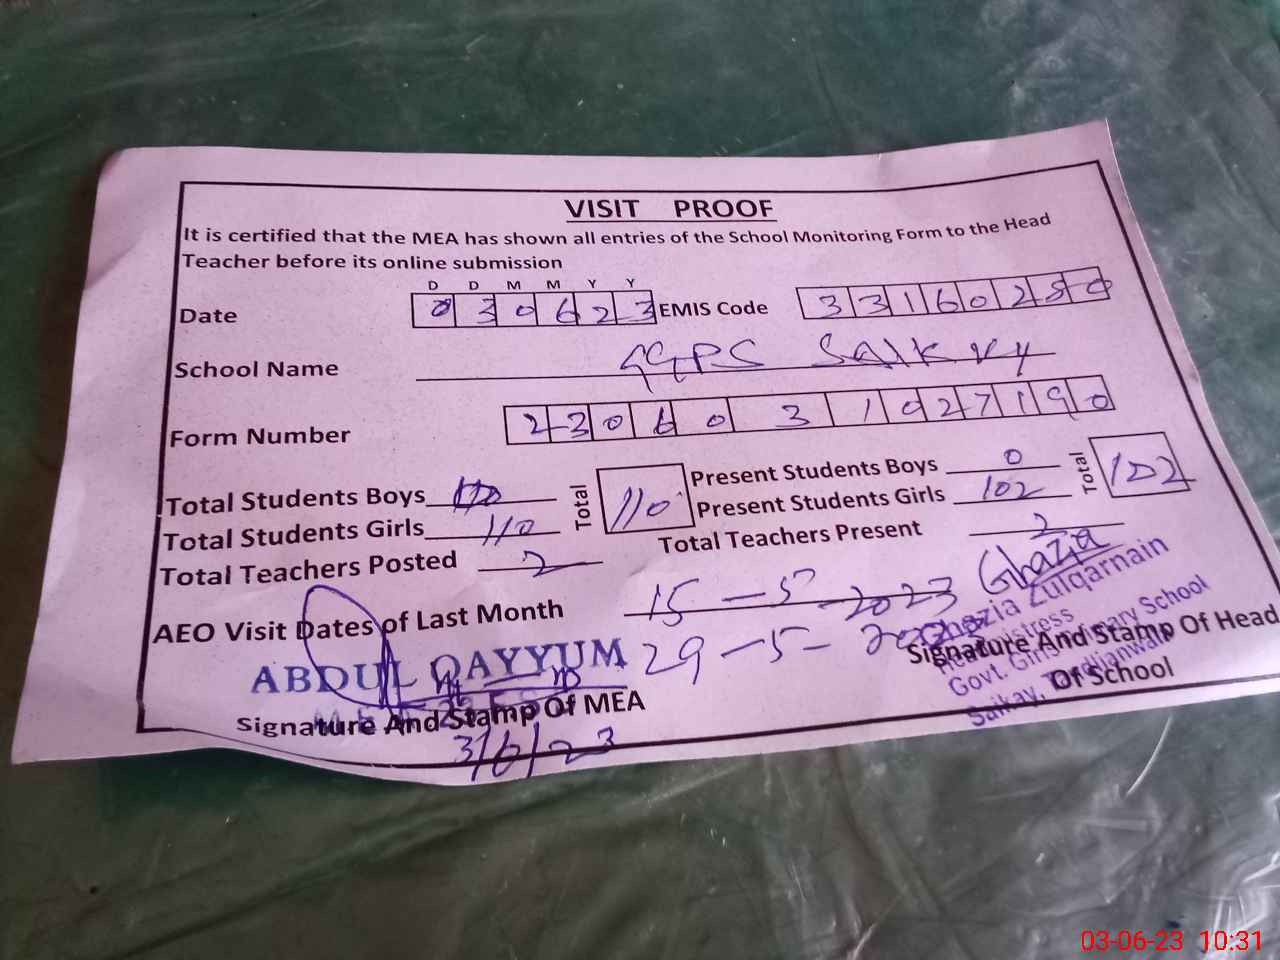 VISIT PROOF
It is certified that the MEA has shown all entries of the School Monitoring Form to the Head
Teacher before its online submission
D D M M Y Y
Date 0 3 0 6 2 3 EMIS Code 3 3 1 6 0 2 8 0
School Name GGPS Saikvy
Form Number 2 3 0 6 0 3 1 0 2 7 1 9 0
Total Students Boys Total 110 Present Students Boys 0 Total 102
Total Students Girls 110 Present Students Girls 102
Total Teachers Posted 2 Total Teachers Present 2
AEO Visit Dates of Last Month 15-5-2023 Ghazia
29-5-2023
ABDUL QAYYUM
Ghazia Zulqarnain
Headmistress
Govt. Girls Primary School
Saikay,
Signature And Stamp Of MEA
Signature And Stamp Of Head
Of School
3/6/23
03-06-23 10:31